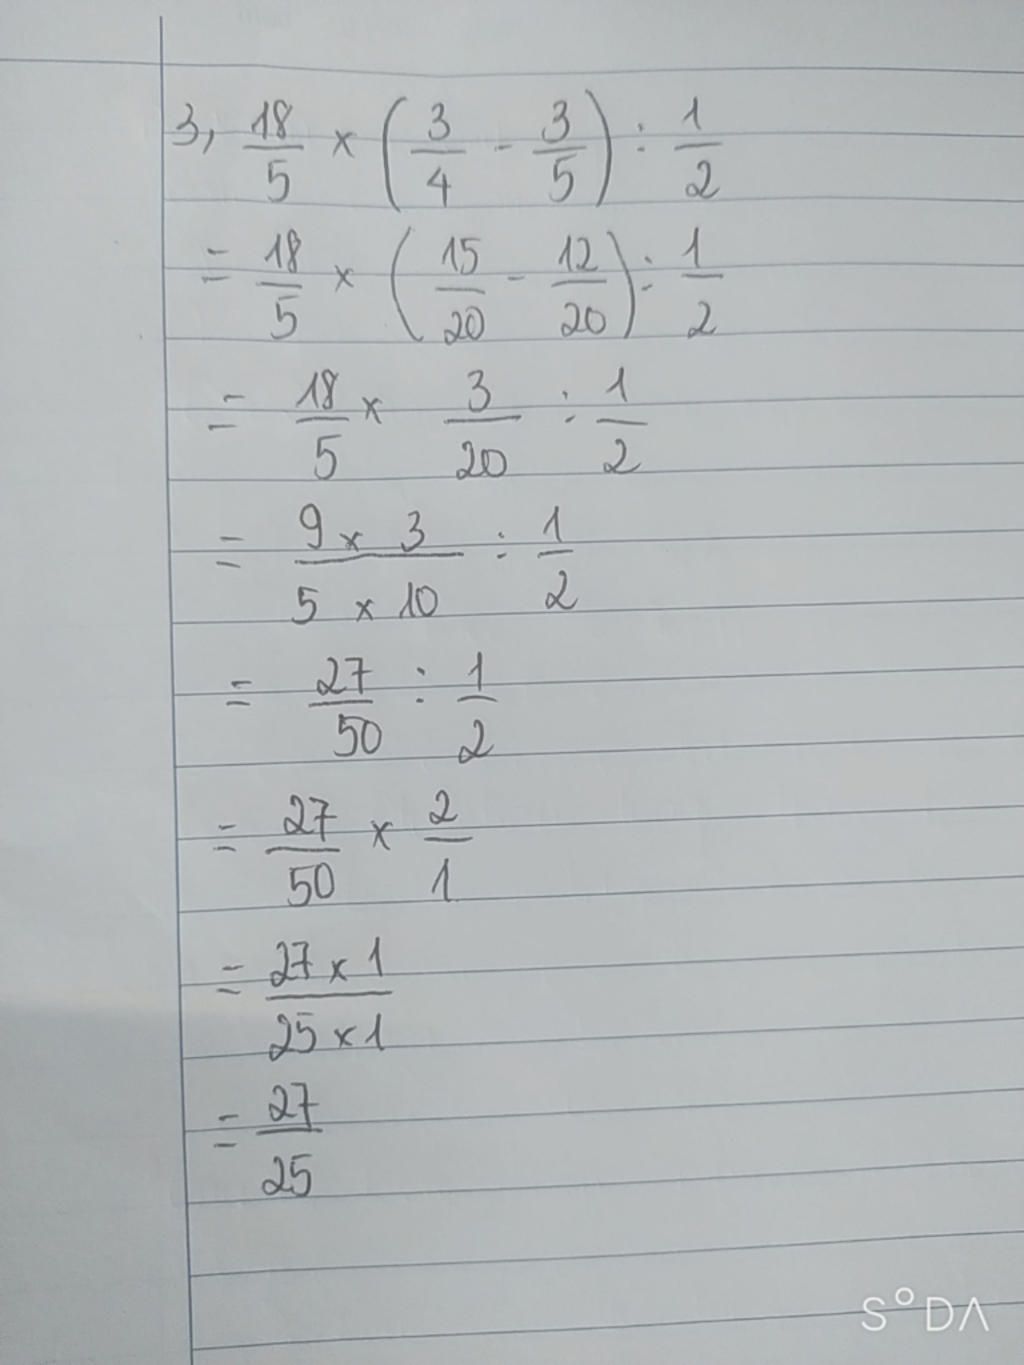 3, 18/5 × (3/4 - 3/5) : 1/2
= 18/5 × (15/20 - 12/20) : 1/2
= 18/5 × 3/20 : 1/2
= 9 × 3/5 × 10 : 1/2
= 27/50 : 1/2
= 27/50 × 2/1
= 27 × 1/25 × 1
= 27/25
S°DA